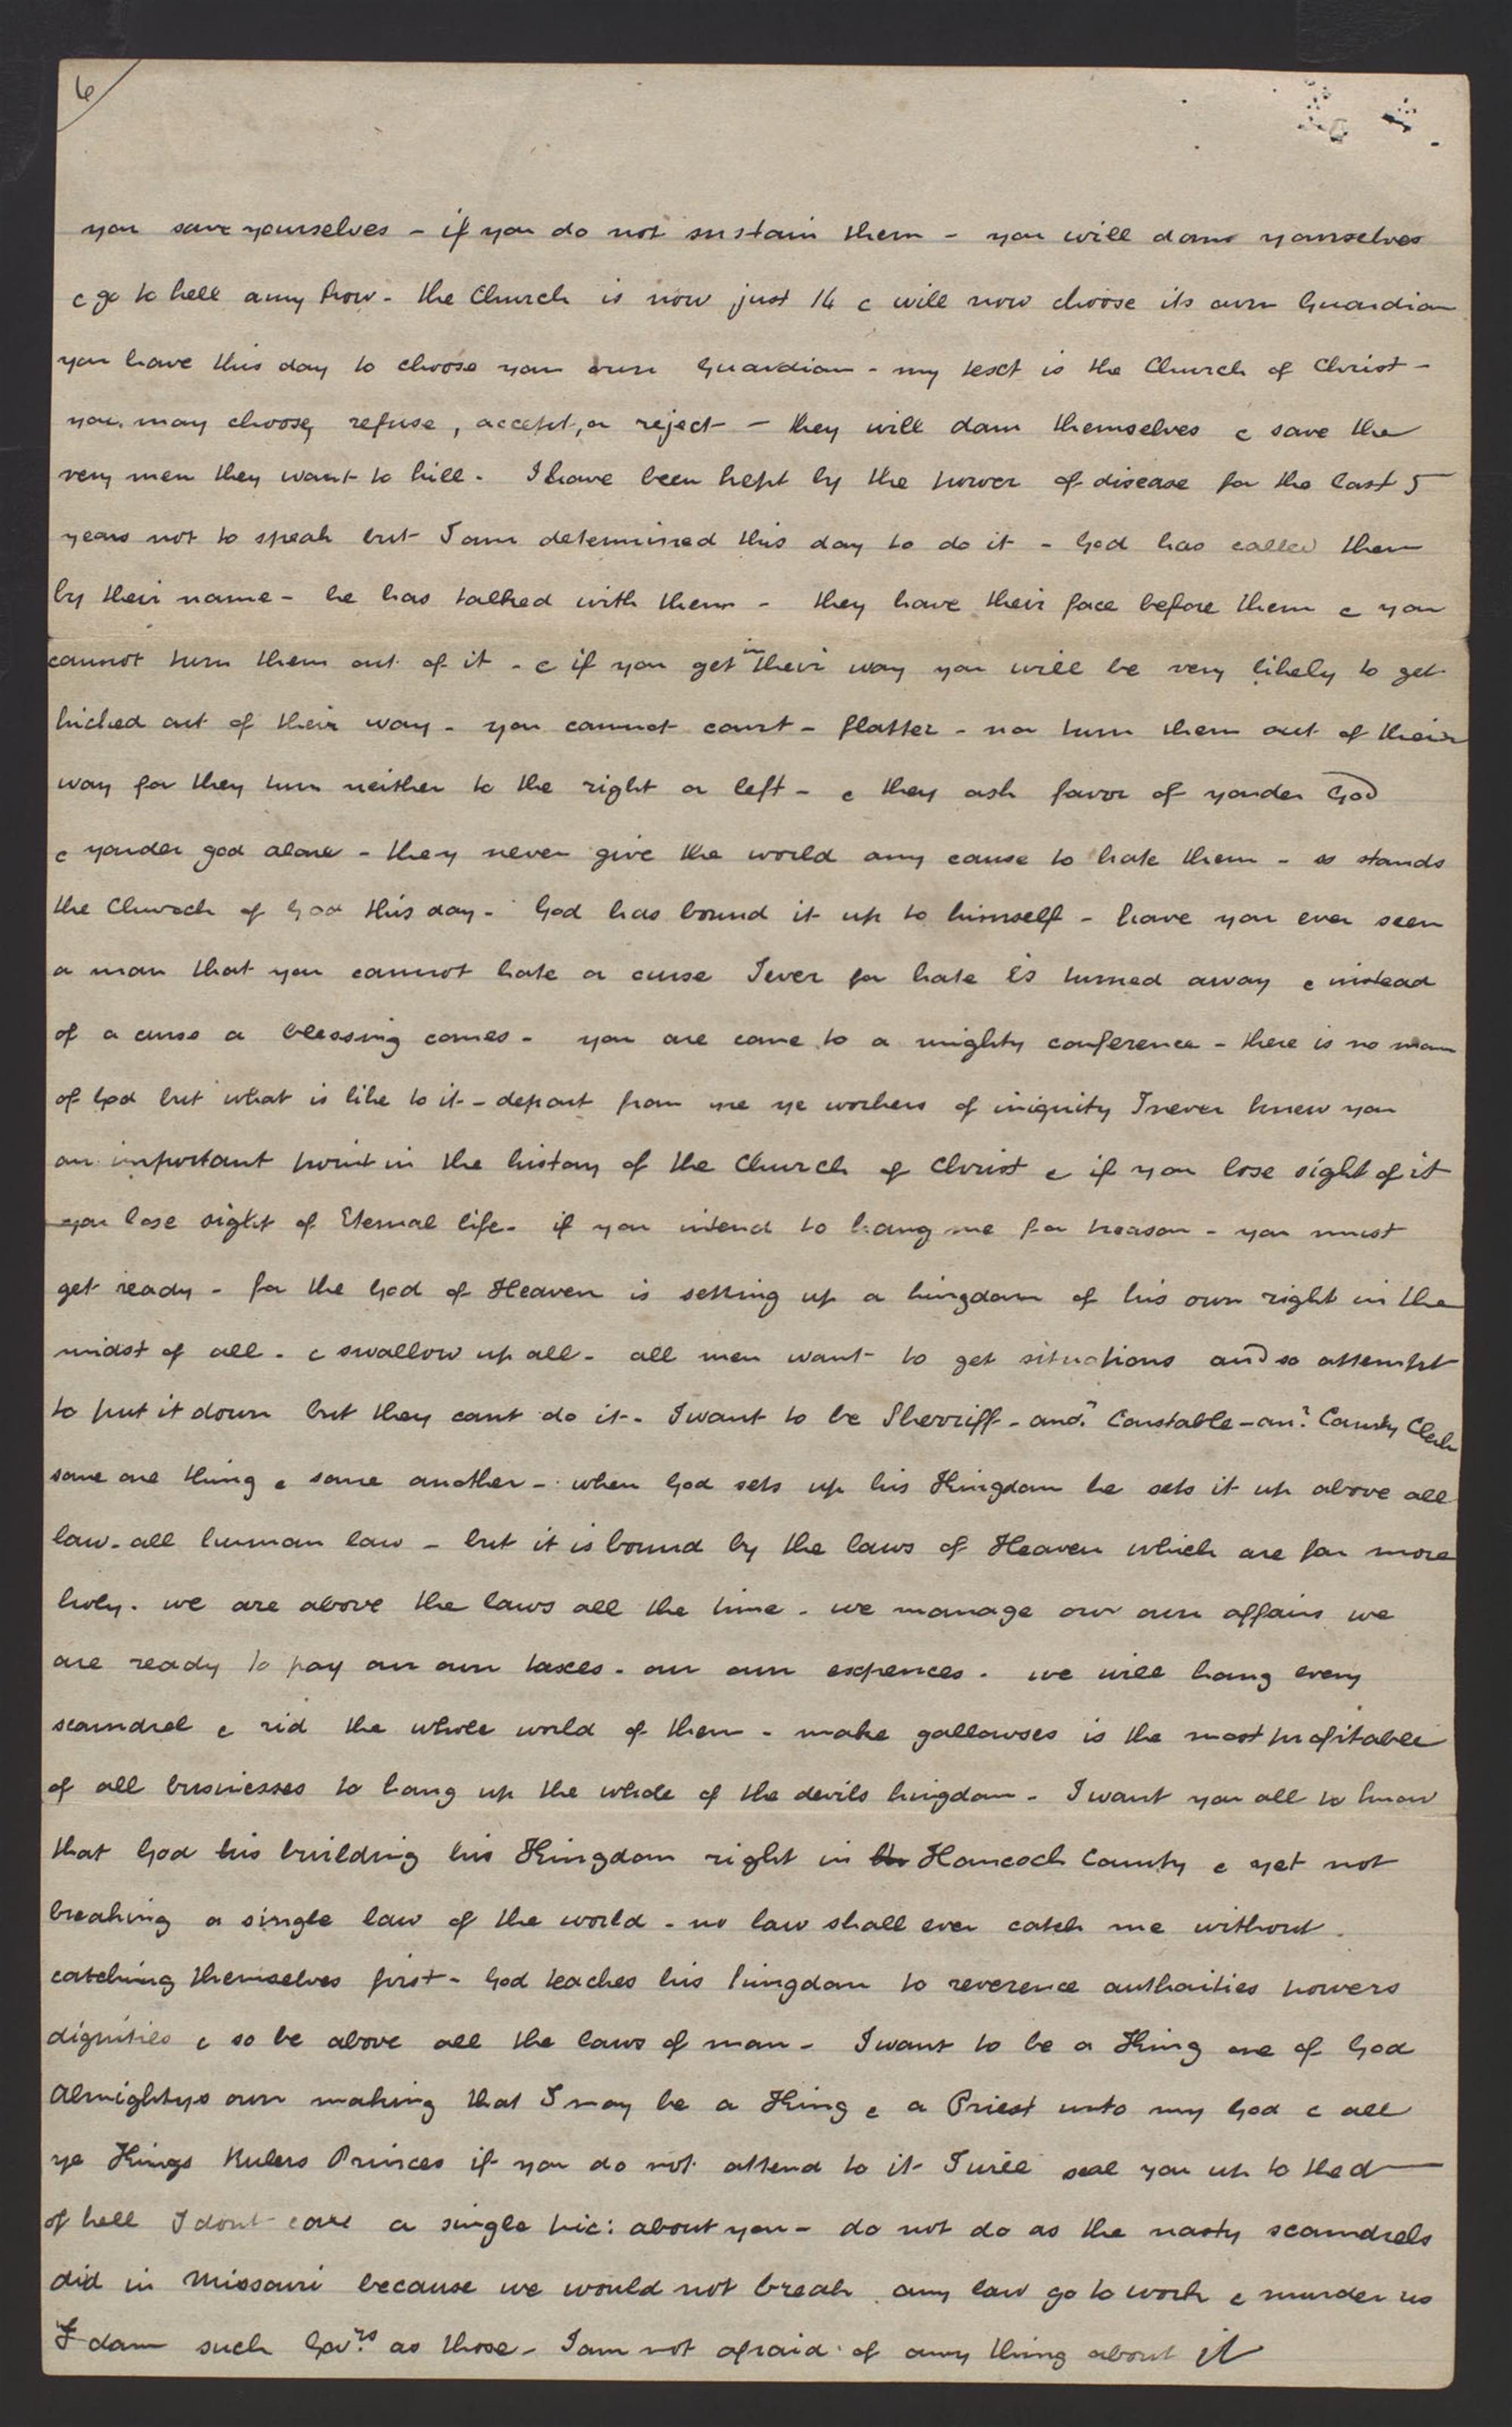 6
you save yourselves - if you do not sustain them - you will damn yourselves
& go to hell any how - the Church is now just 14 & will now choose its own Guardian
you have this day to choose your own Guardian - my text is the Church of Christ -
you may choose, refuse, accept, or reject - they will dam themselves & save the
very men they want to kill - I have been kept by the power of disease for the last 5
years not to speak but I am determined this day to do it - God has called them
by their name - he has talked with them - they have their face before them & you
cannot turn them out of it - & if you get in their way you will be very likely to get
kicked out of their way - you cannot court - flatter - nor turn them out of their
way for they turn neither to the right or left - & they ask favor of yonder God
& yonder god alone - they never give the world any cause to hate them - so stands
the Church of God this day - God has bound it up to himself - have you ever seen
a man that you cannot hate or curse I ever for hate is turned away & instead
of a curse a blessing comes - you are come to a mighty conference - there is no man
of God but what is like to it - depart from me ye workers of iniquity I never knew you
an important point in the history of the Church of Christ & if you lose sight of it
you lose sight of Eternal life - if you intend to hang me for treason - you must
get ready - for the God of Heaven is setting up a kingdom of his own right in the
midst of all - & swallow up all - all men want to get situations and so attempt
to put it down but they cant do it - I want to be Sherriff - anor. Constable - anr. County Clerk
some one thing & some another - when God sets up his Kingdom he sets it up above all
law - all human law - but it is bound by the laws of Heaven which are far more
holy - we are above the laws all the time - we manage our own affairs we
are ready to pay our own taxes - our own expences - we will hang every
scoundrel & rid the whole world of them - make gallowses is the most profitable
of all businesses to hang up the whole of the devils kingdom - I want you all to know
that God his building his Kingdom right in the Hancock County & yet not
breaking a single law of the world - no law shall ever catch me without
catching themselves first - God teaches his kingdom to reverence authorities powers
dignities & so be above all the laws of man - I want to be a King one of God
Almightys own making that I may be a King & a Priest unto my God & all
ye Kings Rulers Princes if you do not attend to it I will seal you up to the d——
of hell I dont care a single pic: about you - do not do as the nasty scoundrels
did in Missouri because we would not break any law go to work & murder us
I dam such Govrs. as those - I am not afraid of any thing about it